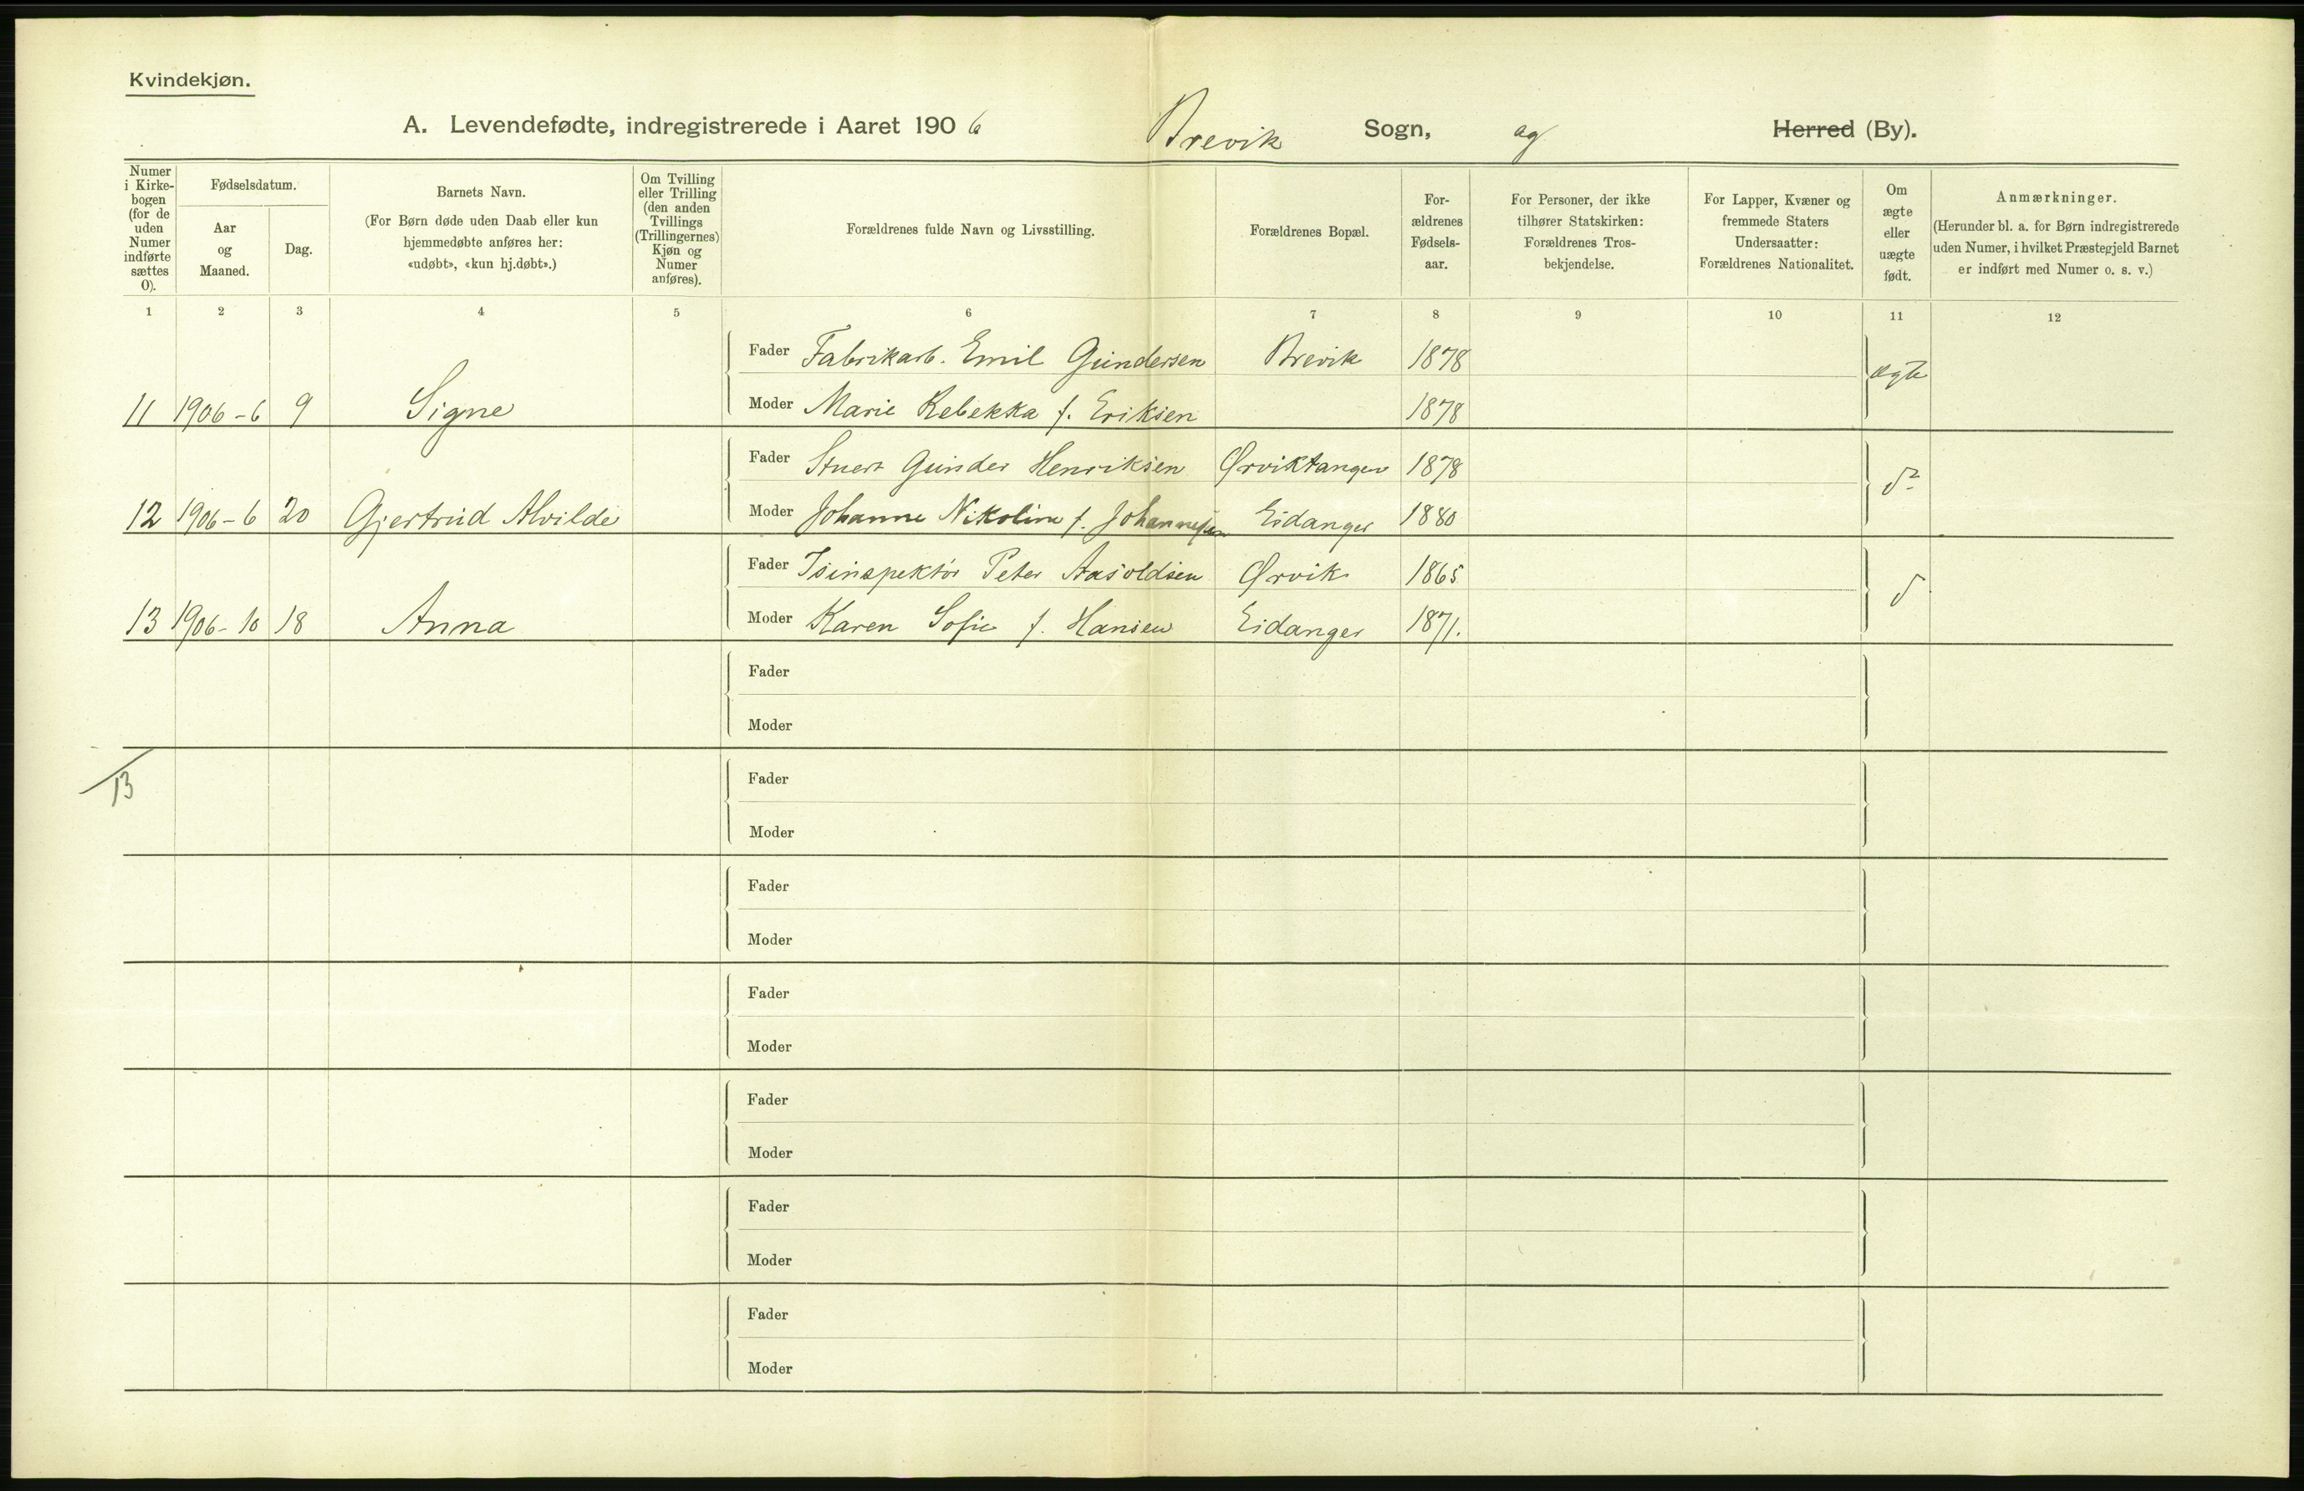 Kvindekjøn.
A. Levendefødte, indregistrerede i Aaret 1906 Brevik Sogn, og Herred (By).
Numer i Kirke-bogen (for de uden Numer indførte sættes 0).
Fødselsdatum.
Aar og Maaned.
Dag.
Barnets Navn.
(For Børn døde uden Daab eller kun
hjemmedøbte anføres her:
«udøbt», «kun hj.døbt».)
Om Tvilling
eller Trilling
(den anden
Tvillings
(Trillingernes)
Kjøn og
Numer
anføres).
Forældrenes fulde Navn og Livsstilling.
Forældrenes Bopæl.
For-
ældrenes
Fødsels-
aar.
For Personer, der ikke
tilhører Statskirken:
Forældrenes Tros-
bekjendelse.
For Lapper, Kvæner og
fremmede Staters
Undersaatter:
Forældrenes Nationalitet.
Om
ægte
eller
uægte
født.
Anmærkninger.
(Herunder bl. a. for Børn indregistrerede
uden Numer, i hvilket Præstegjeld Barnet
er indført med Numer o. s. v.)
1 2 3 4 5 6 7 8 9 10 11 12
Fader Fabrikarb. Emil Gundersen Brevik 1878 ægte
11 1906-6 9 Signe Moder Marie Rebekka f. Eriksen 1878
Fader Stuert Gunder Henriksen Ørviktangen 1878
12 1906-6 20 Gjertrud Alvilde Moder Johanne Nikoline f. Johannesen Eidanger 1880
Fader Isinspektør Peter Aasoldsen Ørvik 1865
13 1906-10 18 Anna Moder Karen Sofie f. Hansen Eidanger 1871.
Fader
Moder
13
Fader
Moder
Fader
Moder
Fader
Moder
Fader
Moder
Fader
Moder
Fader
Moder